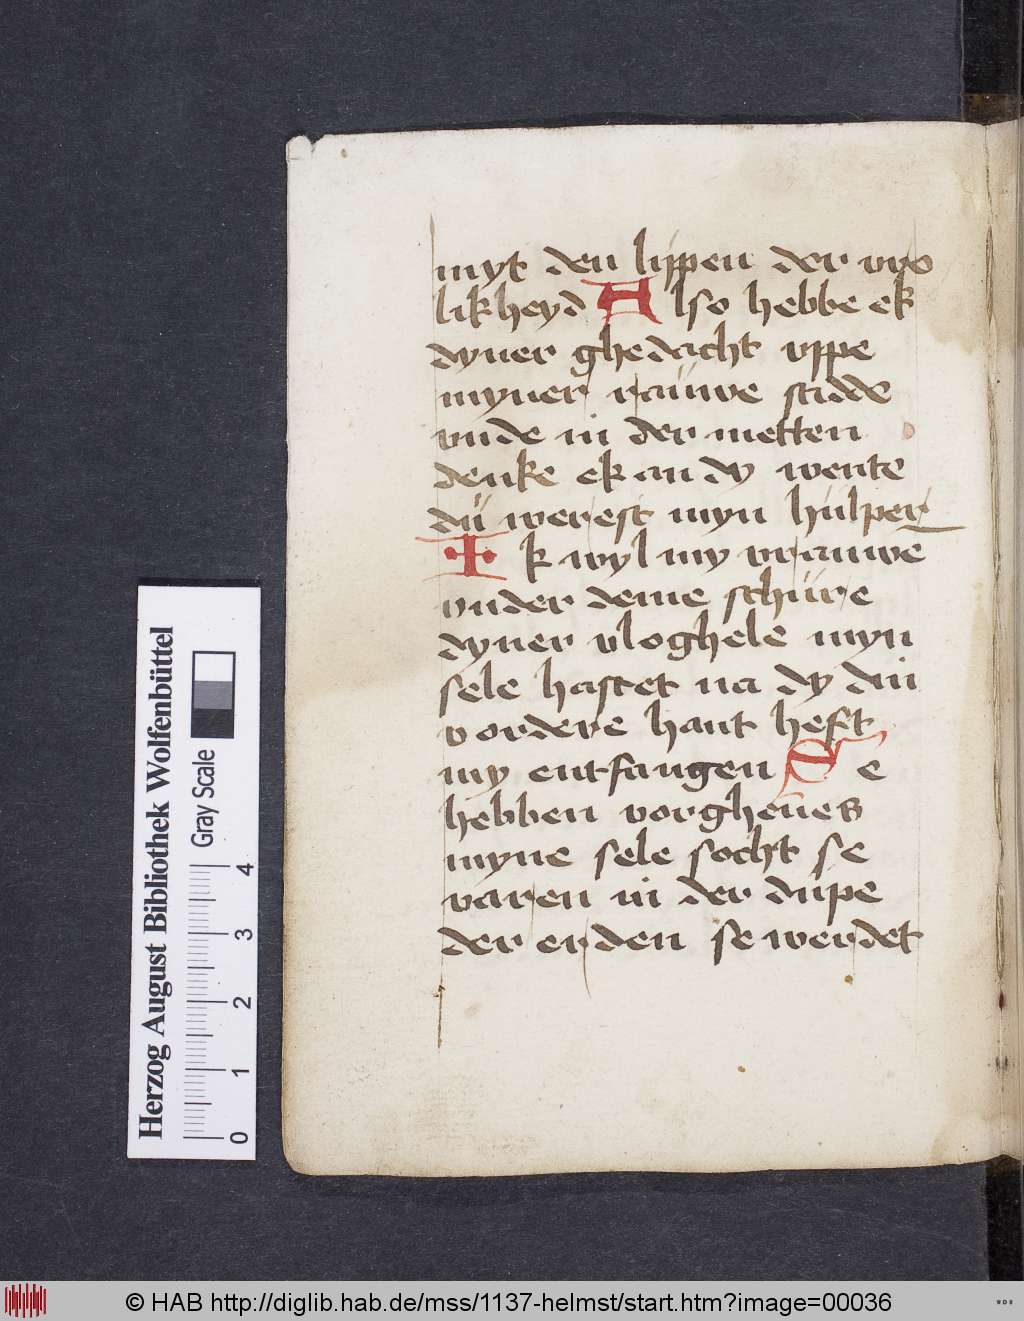 myt den lippen der vro
likheyd Also hebbe ek
dyner ghedacht vppe
myner rauwe stidde
vnde in der metten
denke ek an dy wente
du werest myn hulper
Ik wyl my vrauwe
vnder deme schure
dyner vloghele myn
sele hastet na dy din
vordere hant heft
my entfangen Se
hebben vorgheues
myne sele socht se
varen in der dupe
der erden se werdet
Herzog August Bibliothek Wolfenbüttel
Gray Scale
0 1 2 3 4
© HAB http://diglib.hab.de/mss/1137-helmst/start.htm?image=00036